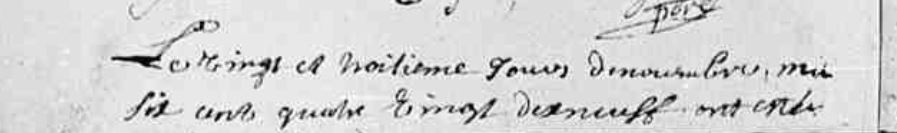 Le vingt et hoitieme Jours de nouembre mil
six cents quatre vingt dixneuff ont esté